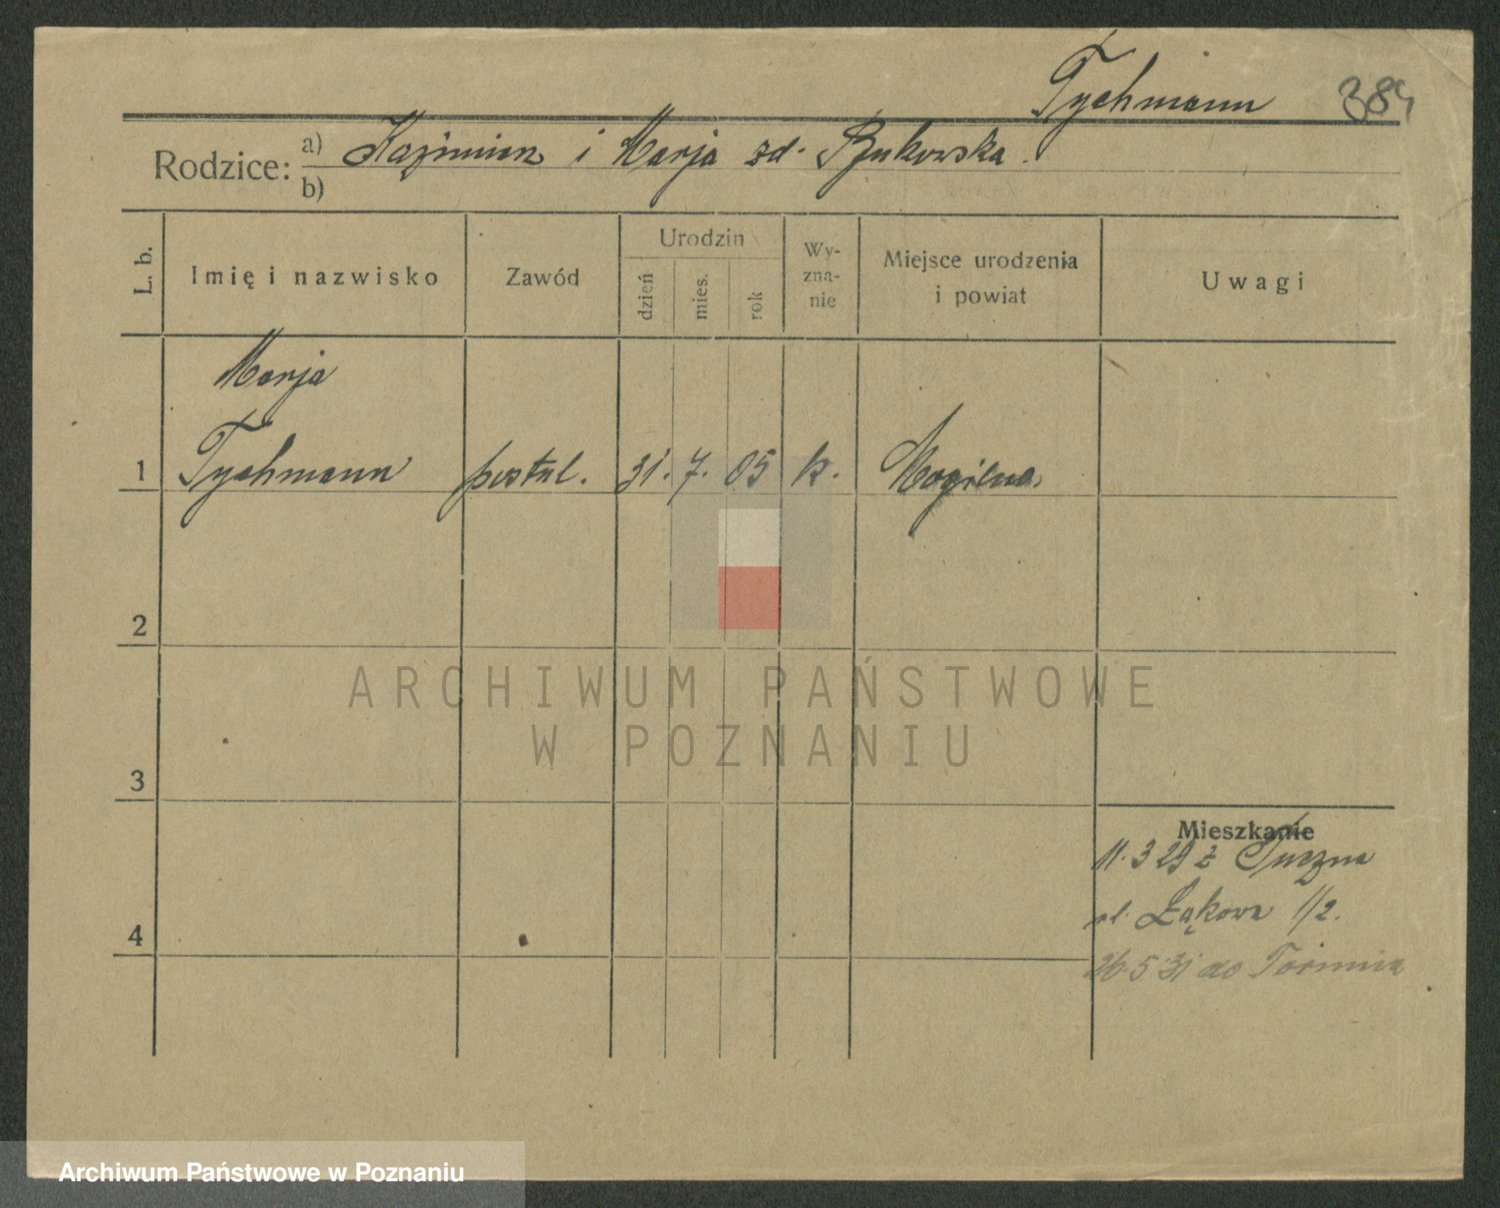 Tychmann 384
Rodzice: a) Kazimierz i Marja zd. Bukowska.
b)
L. b. Imię i nazwisko Zawód Urodzin dzień mies. rok Wy-zna-nie Miejsce urodzenia i powiat Uwagi
Marja
1 Tychmann postul. 31. 7. 05 k. Mogilno.
2
ARCHIWUM PAŃSTWOWE
W POZNANIU
3
Mieszkanie
11. 3 29 z
ul. Łąkowa 1/2.
4
26. 5 31 do
Archiwum Państwowe w Poznaniu